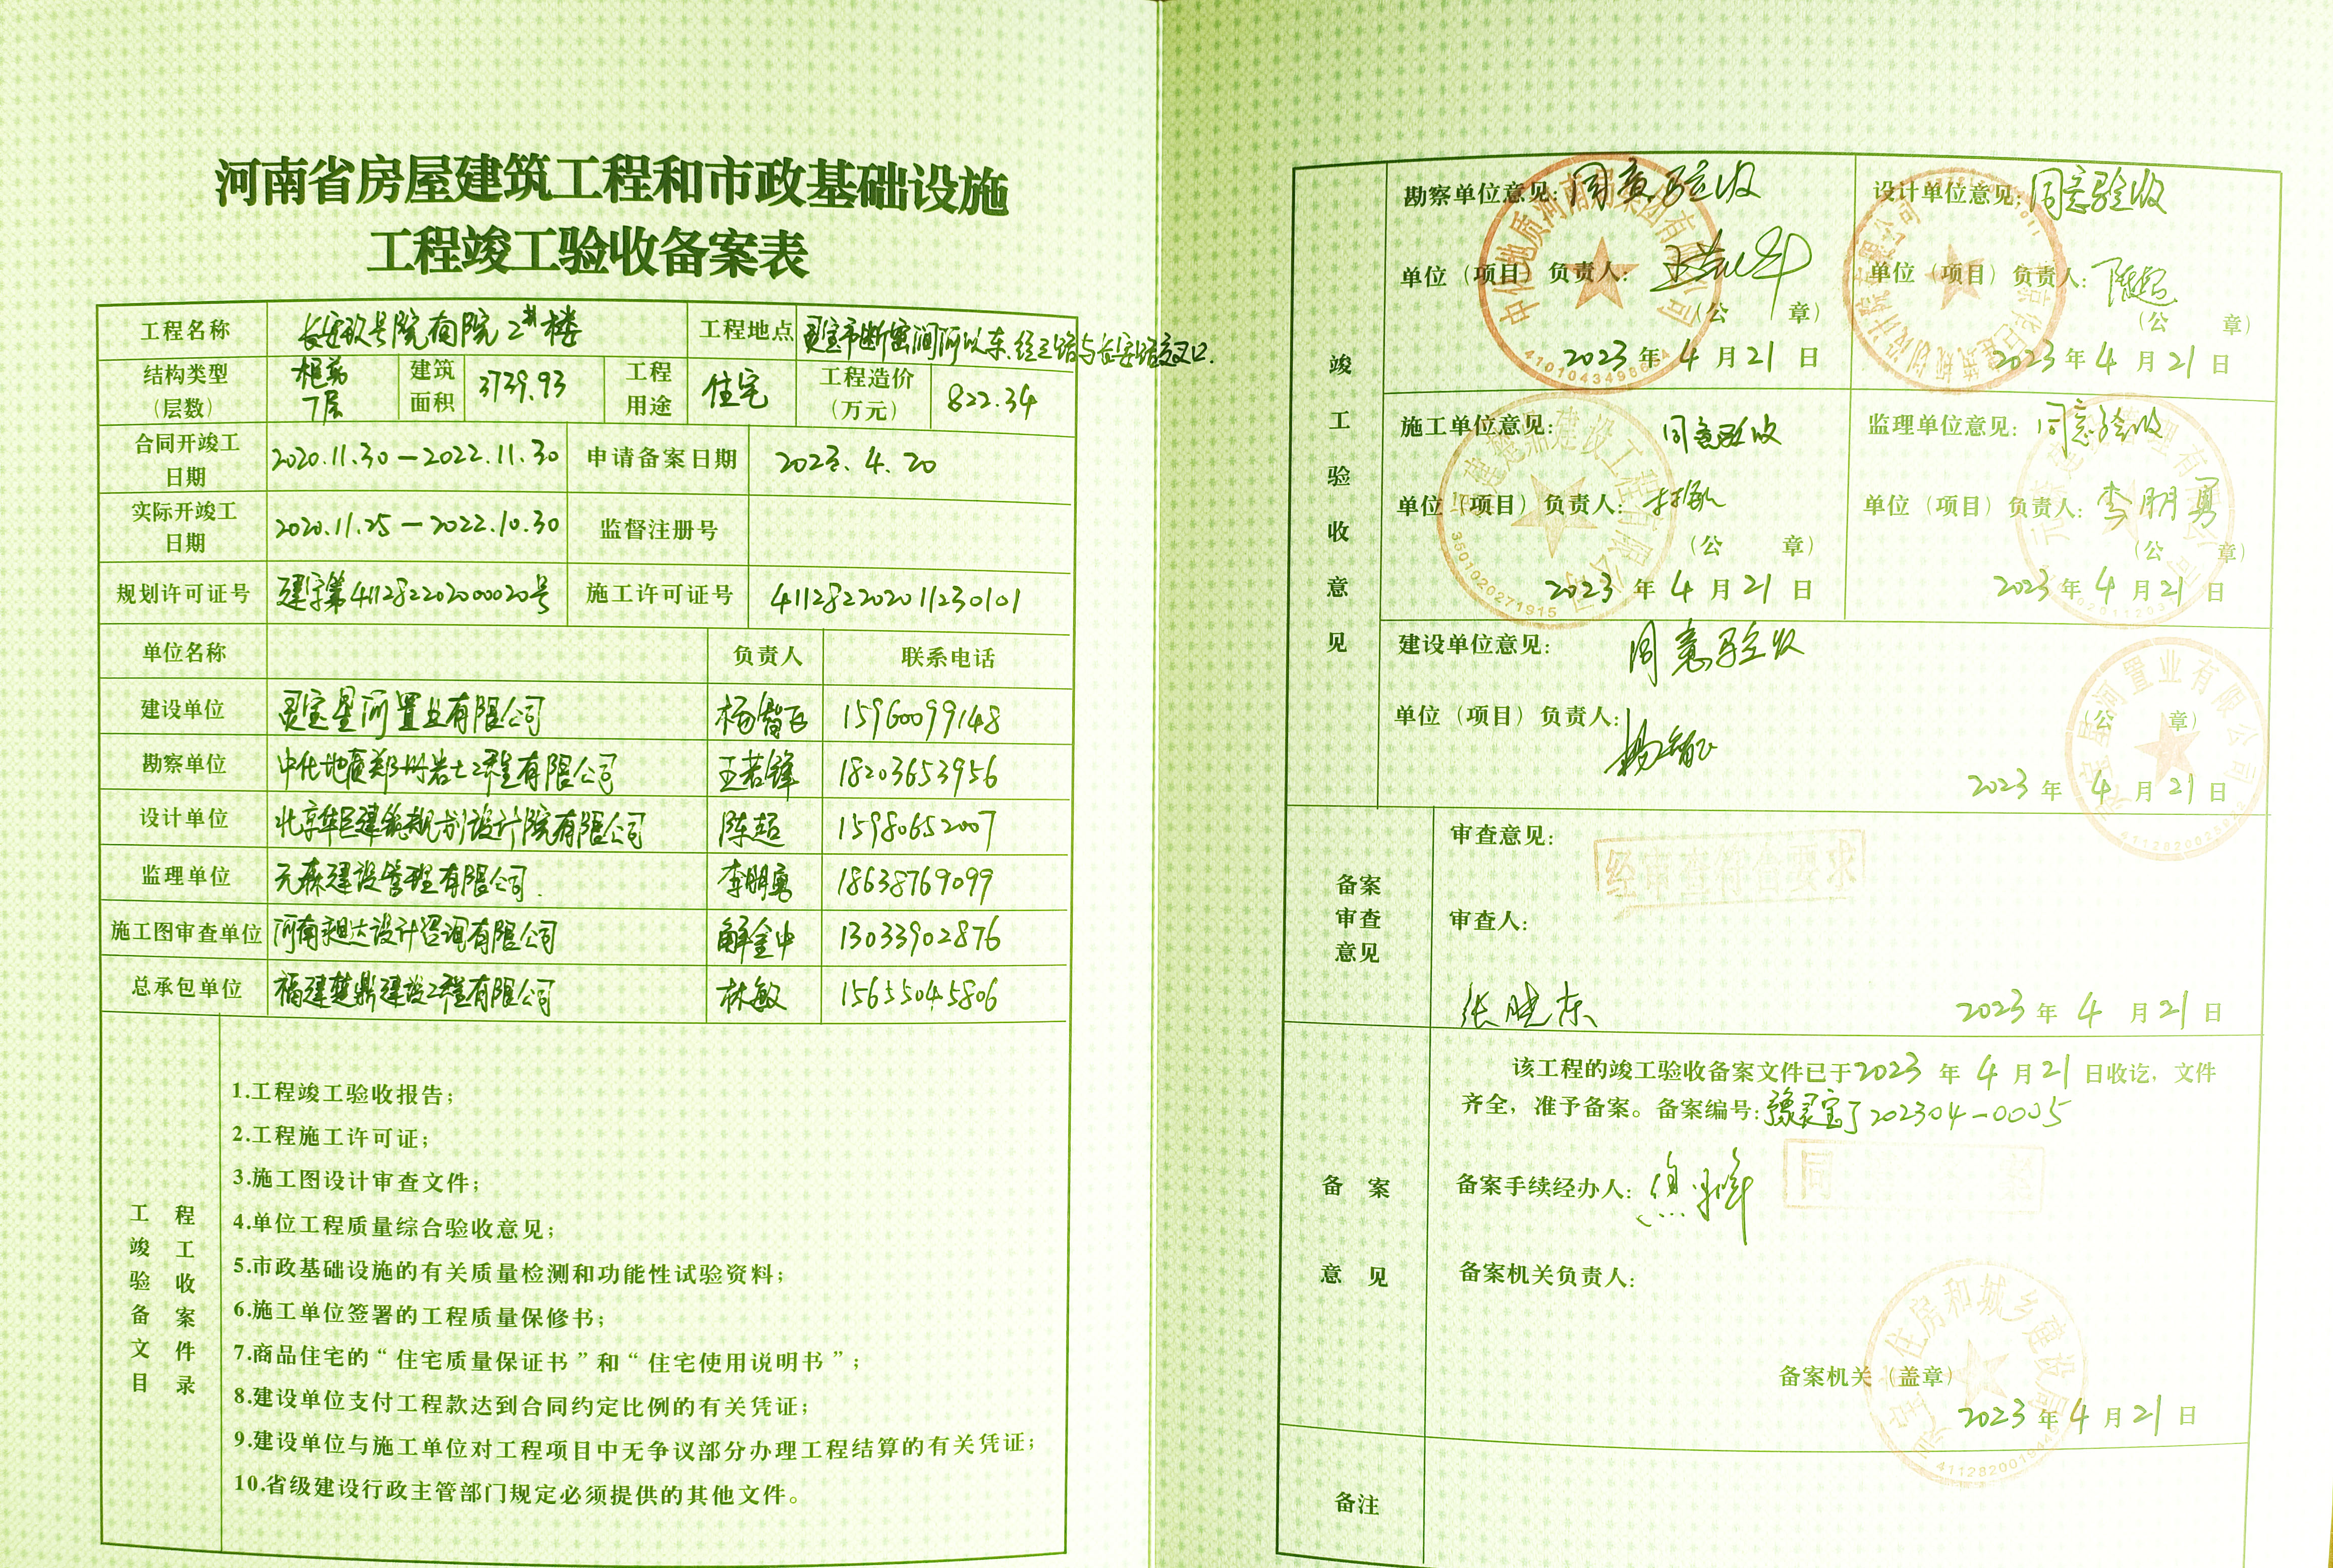 河南省房屋建筑工程和市政基础设施
工程竣工验收备案表
工程名称 长安玖号院南院2#楼 工程地点 灵宝市断密涧河以东、经三路与长安路交叉口.
结构类型(层数) 框剪7层 建筑面积 3739.93 工程用途 住宅 工程造价(万元) 822.34
合同开竣工日期 2020.11.30—2022.11.30 申请备案日期 2023.4.20
实际开竣工日期 2020.11.25—2022.10.30 监督注册号
规划许可证号 建字第411282202000020号 施工许可证号 411282202011230101
单位名称 负责人 联系电话
建设单位 灵宝星河置业有限公司 杨智飞 15960099148
勘察单位 中化地质郑州岩土工程有限公司 王若锋 18203653956
设计单位 北京华巨建筑规划设计院有限公司 陈超 15980652007
监理单位 元森建设管理有限公司. 李朋勇 18638769099
施工图审查单位 河南昶达设计咨询有限公司 解金中 13033902876
总承包单位 福建楚鼎建设工程有限公司 林敏 15655045806
工程竣工验收备案文件目录
1.工程竣工验收报告;
2.工程施工许可证;
3.施工图设计审查文件;
4.单位工程质量综合验收意见;
5.市政基础设施的有关质量检测和功能性试验资料;
6.施工单位签署的工程质量保修书;
7.商品住宅的“住宅质量保证书”和“住宅使用说明书”;
8.建设单位支付工程款达到合同约定比例的有关凭证;
9.建设单位与施工单位对工程项目中无争议部分办理工程结算的有关凭证;
10.省级建设行政主管部门规定必须提供的其他文件。
竣工验收意见
勘察单位意见:同意验收
单位(项目)负责人:
(公 章)
2023年4月21日
设计单位意见:同意验收
单位(项目)负责人:陈超
(公 章)
2023年4月21日
施工单位意见: 同意验收
单位(项目)负责人:林敏
(公 章)
2023年4月21日
3501020271915
监理单位意见: 同意验收
单位(项目)负责人:李朋勇
(公 章)
2023年4月21日
建设单位意见: 同意验收
单位(项目)负责人:杨智飞
(公 章)
2023年4月21日
备案审查意见
审查意见:
经审查符合要求
审查人:
张晓东
2023年4月21日
备案意见
该工程的竣工验收备案文件已于2023年4月21日收讫,文件
齐全,准予备案。备案编号:豫灵宝J202304-0005
备案手续经办人:
同
备案机关负责人:
住房和城乡建设局
备案机关(盖章)
2023年4月21日
备注